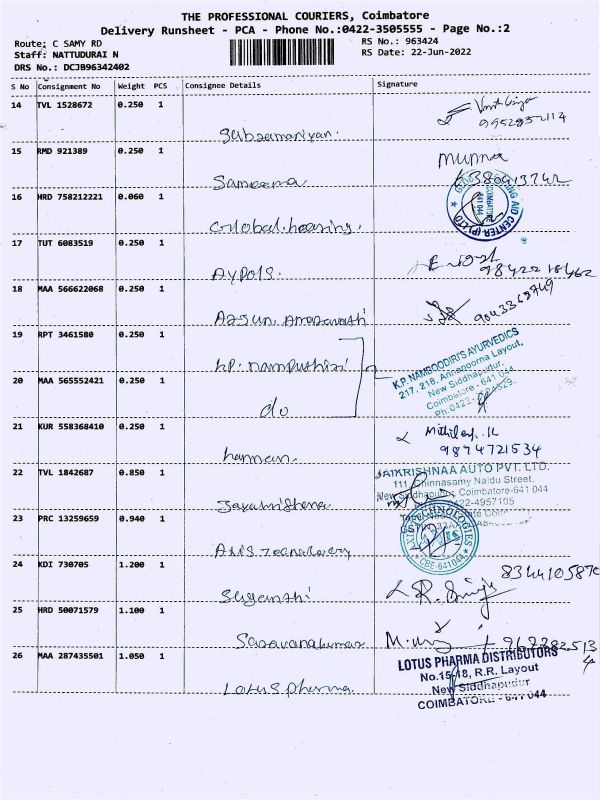 THE PROFESSIONAL COURIERS, Coimbatore
Delivery Runsheet - PCA - Phone No.:0422-3505555 - Page No.:2
Route: C SAMY RD
Staff: NATTUDURAI N
DRS No.: DCJB96342402
RS No.: 963424
RS Date: 22-Jun-2022
S No Consignment No Weight PCS Consignee Details Signature
14 TVL 1528672 0.250 1
Subramaniyan.
15 RMD 921389 0.250 1
Sameema
munna
16 HRD 758212221 0.060 1
Global hearing.
AID CENTER (P) LTD
COIMBATORE
641 044
17 TUT 6083519 0.250 1
9842218462
18 MAA 566622068 0.250 1
9043367749
19 RPT 3461580 0.250 1
K.P. NAMBOODIRI'S AYURVEDICS
217, 218, Annapoorna Layout,
New Siddhapudur,
Coimbatore - 641 044
20 MAA 565552421 0.250 1
do
21 KUR 558368410 0.250 1
9874721534
22 TVL 1842687 0.850 1
JAIKRISHNAA AUTO PVT. LTD.
111, Chinnasamy Naidu Street,
New Siddhapudur, Coimbatore-641 044
0422-4957105
23 PRC 13259659 0.940 1
TECHNOLOGIES
CBE-641044
24 KDI 730705 1.200 1
Suganthi
8344105870
25 HRD 50071579 1.100 1
Saravanakumar
26 MAA 287435501 1.050 1
Lotus pharma.
LOTUS PHARMA DISTRIBUTORS
No.15-18, R.R. Layout
New Siddhapudur
COIMBATORE - 641 044